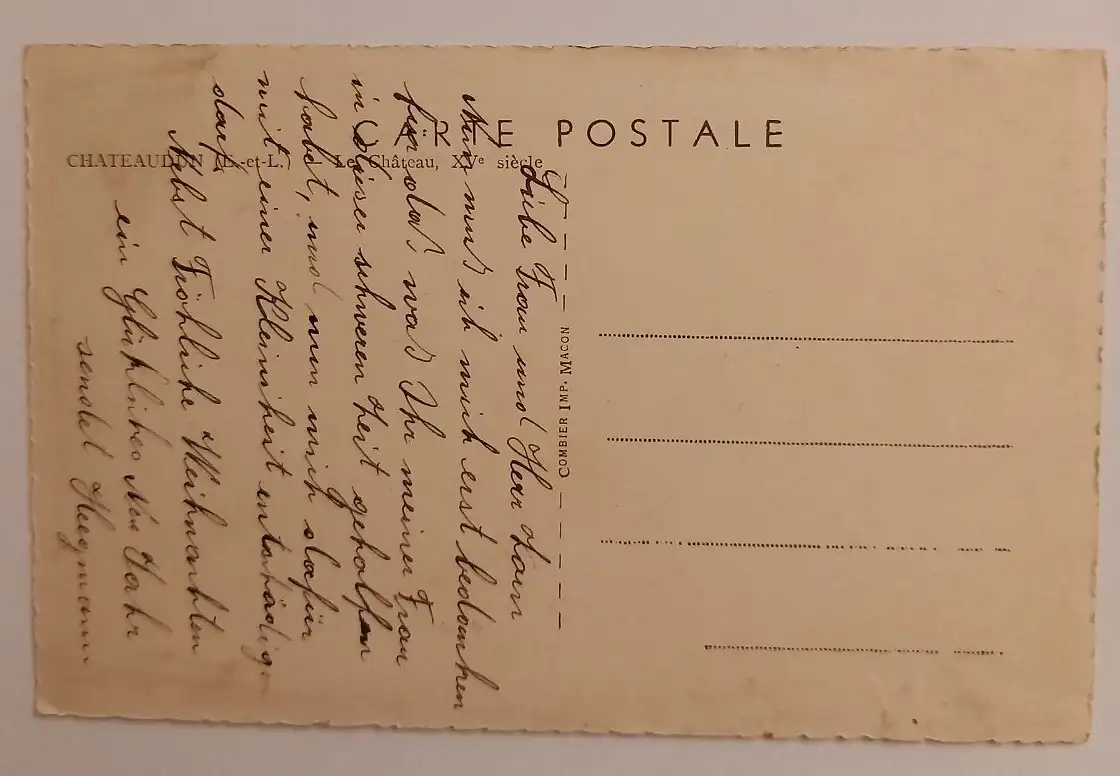 CARTE POSTALE
CHATEAUDUN (E.-et-L.) - Le Château, XVe siècle
COMBIER IMP. MACON
Liebe Frau und Herr
Nun muß ich mich erst bedanken
für das was Ihr meiner Frau
in dieser schweren Zeit geholfen
habet, und nun mich dafür
mit einer Kleinheit entschädigen
darf.
Nebst Fröhliche Weihnachten
ein Glückliches Neu Jahr
sendet Heegmann